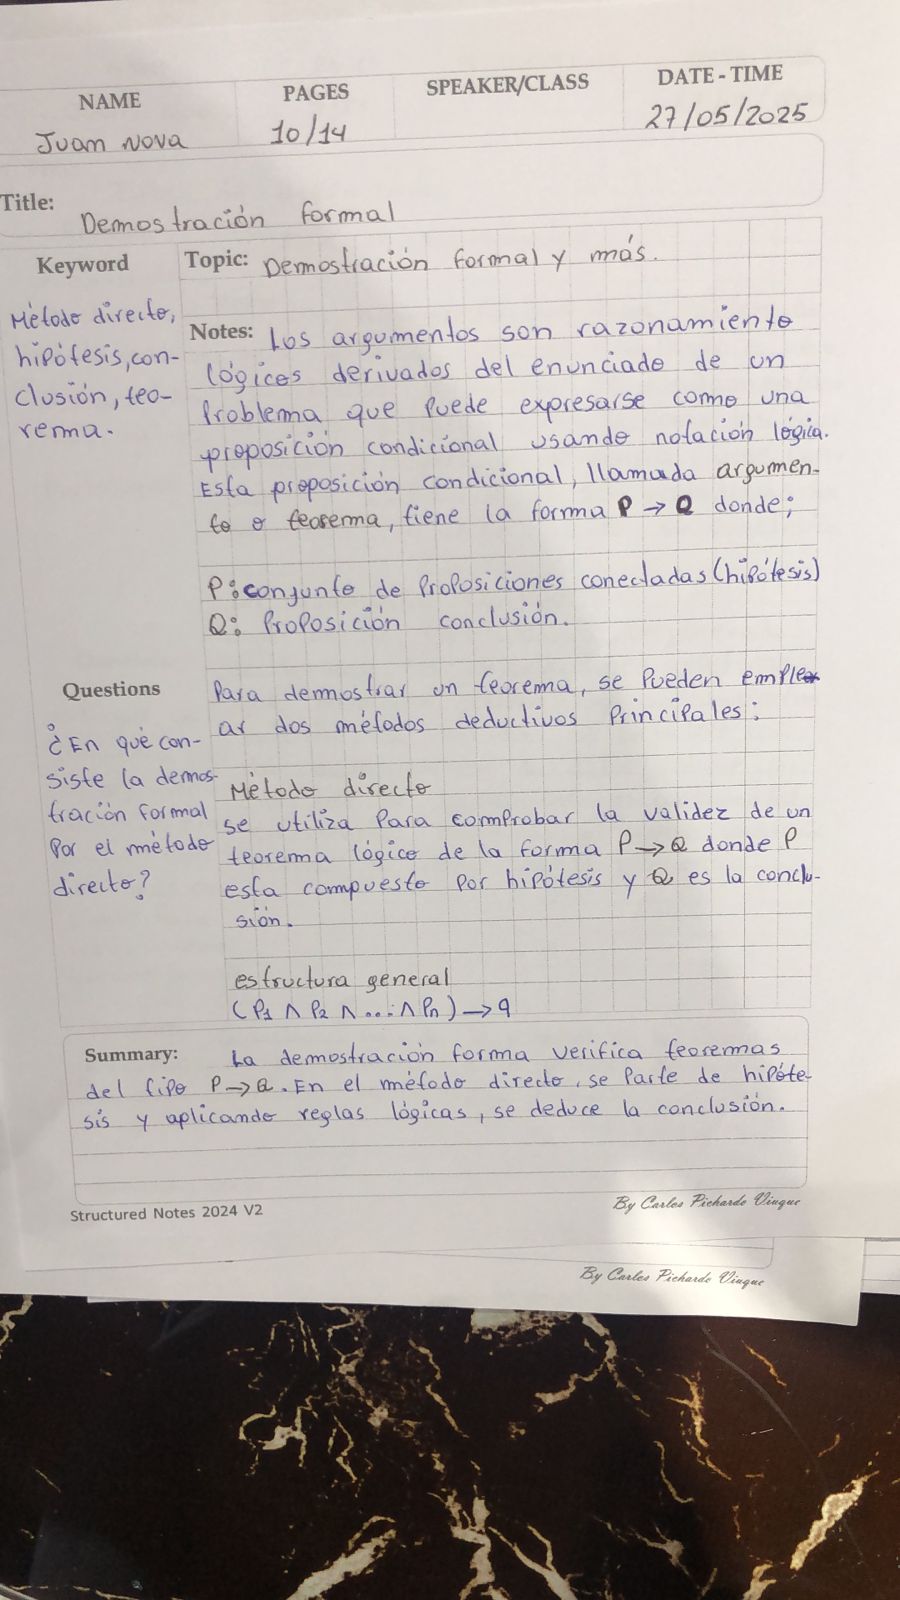 NAME
PAGES
SPEAKER/CLASS
DATE - TIME
Juan Nova
10/14
27/05/2025
Title: Demostración formal
Keyword
Método directo,
hipótesis, con-
clusión, teo-
rema.
Topic: Demostración formal y más.
Notes: Los argumentos son razonamiento
lógicos derivados del enunciado de un
Problema que puede expresarse como una
proposición condicional usando notación lógica.
Esta proposición condicional, llamada argumen-
to o teorema, tiene la forma P → Q donde;
P: conjunto de Proposiciones conectadas (hipótesis)
Q: Proposición conclusión.
Para demostrar un teorema, se Pueden emple
ar dos métodos deductivos Principales:
Questions
¿En qué con-
siste la demos-
tración formal
Por el método
directo?
Método directo
se utiliza Para comprobar la validez de un
teorema lógico de la forma P → Q donde P
esta compuesto por hipótesis y Q es la conclu-
sión.
estructura general
(P1 ∧ P2 ∧ ... ∧ Pn) → q
Summary: La demostración forma verifica teoremas
del tipo P → Q. En el método directo, se Parte de hipóte-
sis y aplicando reglas lógicas, se deduce la conclusión.
Structured Notes 2024 V2
By Carlos Pichardo Viuque
By Carlos Pichardo Viuque